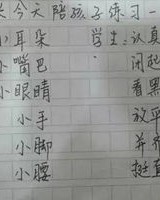 今天陪孩子练习一
小耳朵 学生:认真
小嘴巴 闭起
小眼睛 看黑
小手 放平
小脚 并齐
小腰 挺直